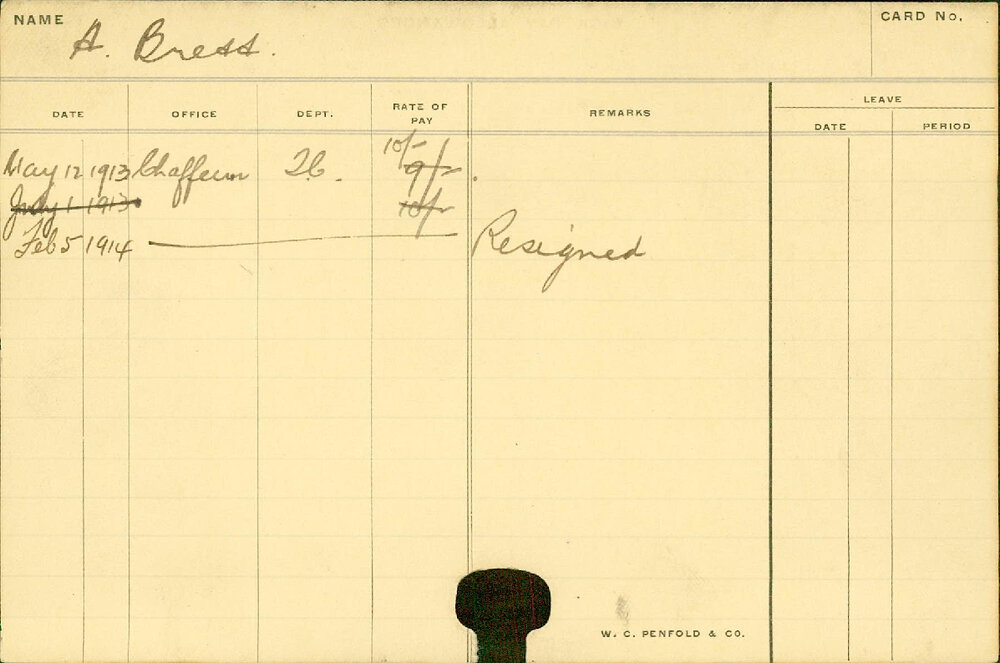 NAME A. Bress. CARD No.
DATE OFFICE DEPT. RATE OF PAY REMARKS LEAVE
DATE PERIOD
May 12 1913 Chaffeur 10/- 9/-
July 1 1913 10/-
Feb 5 1914 Resigned
W. C. PENFOLD & CO.